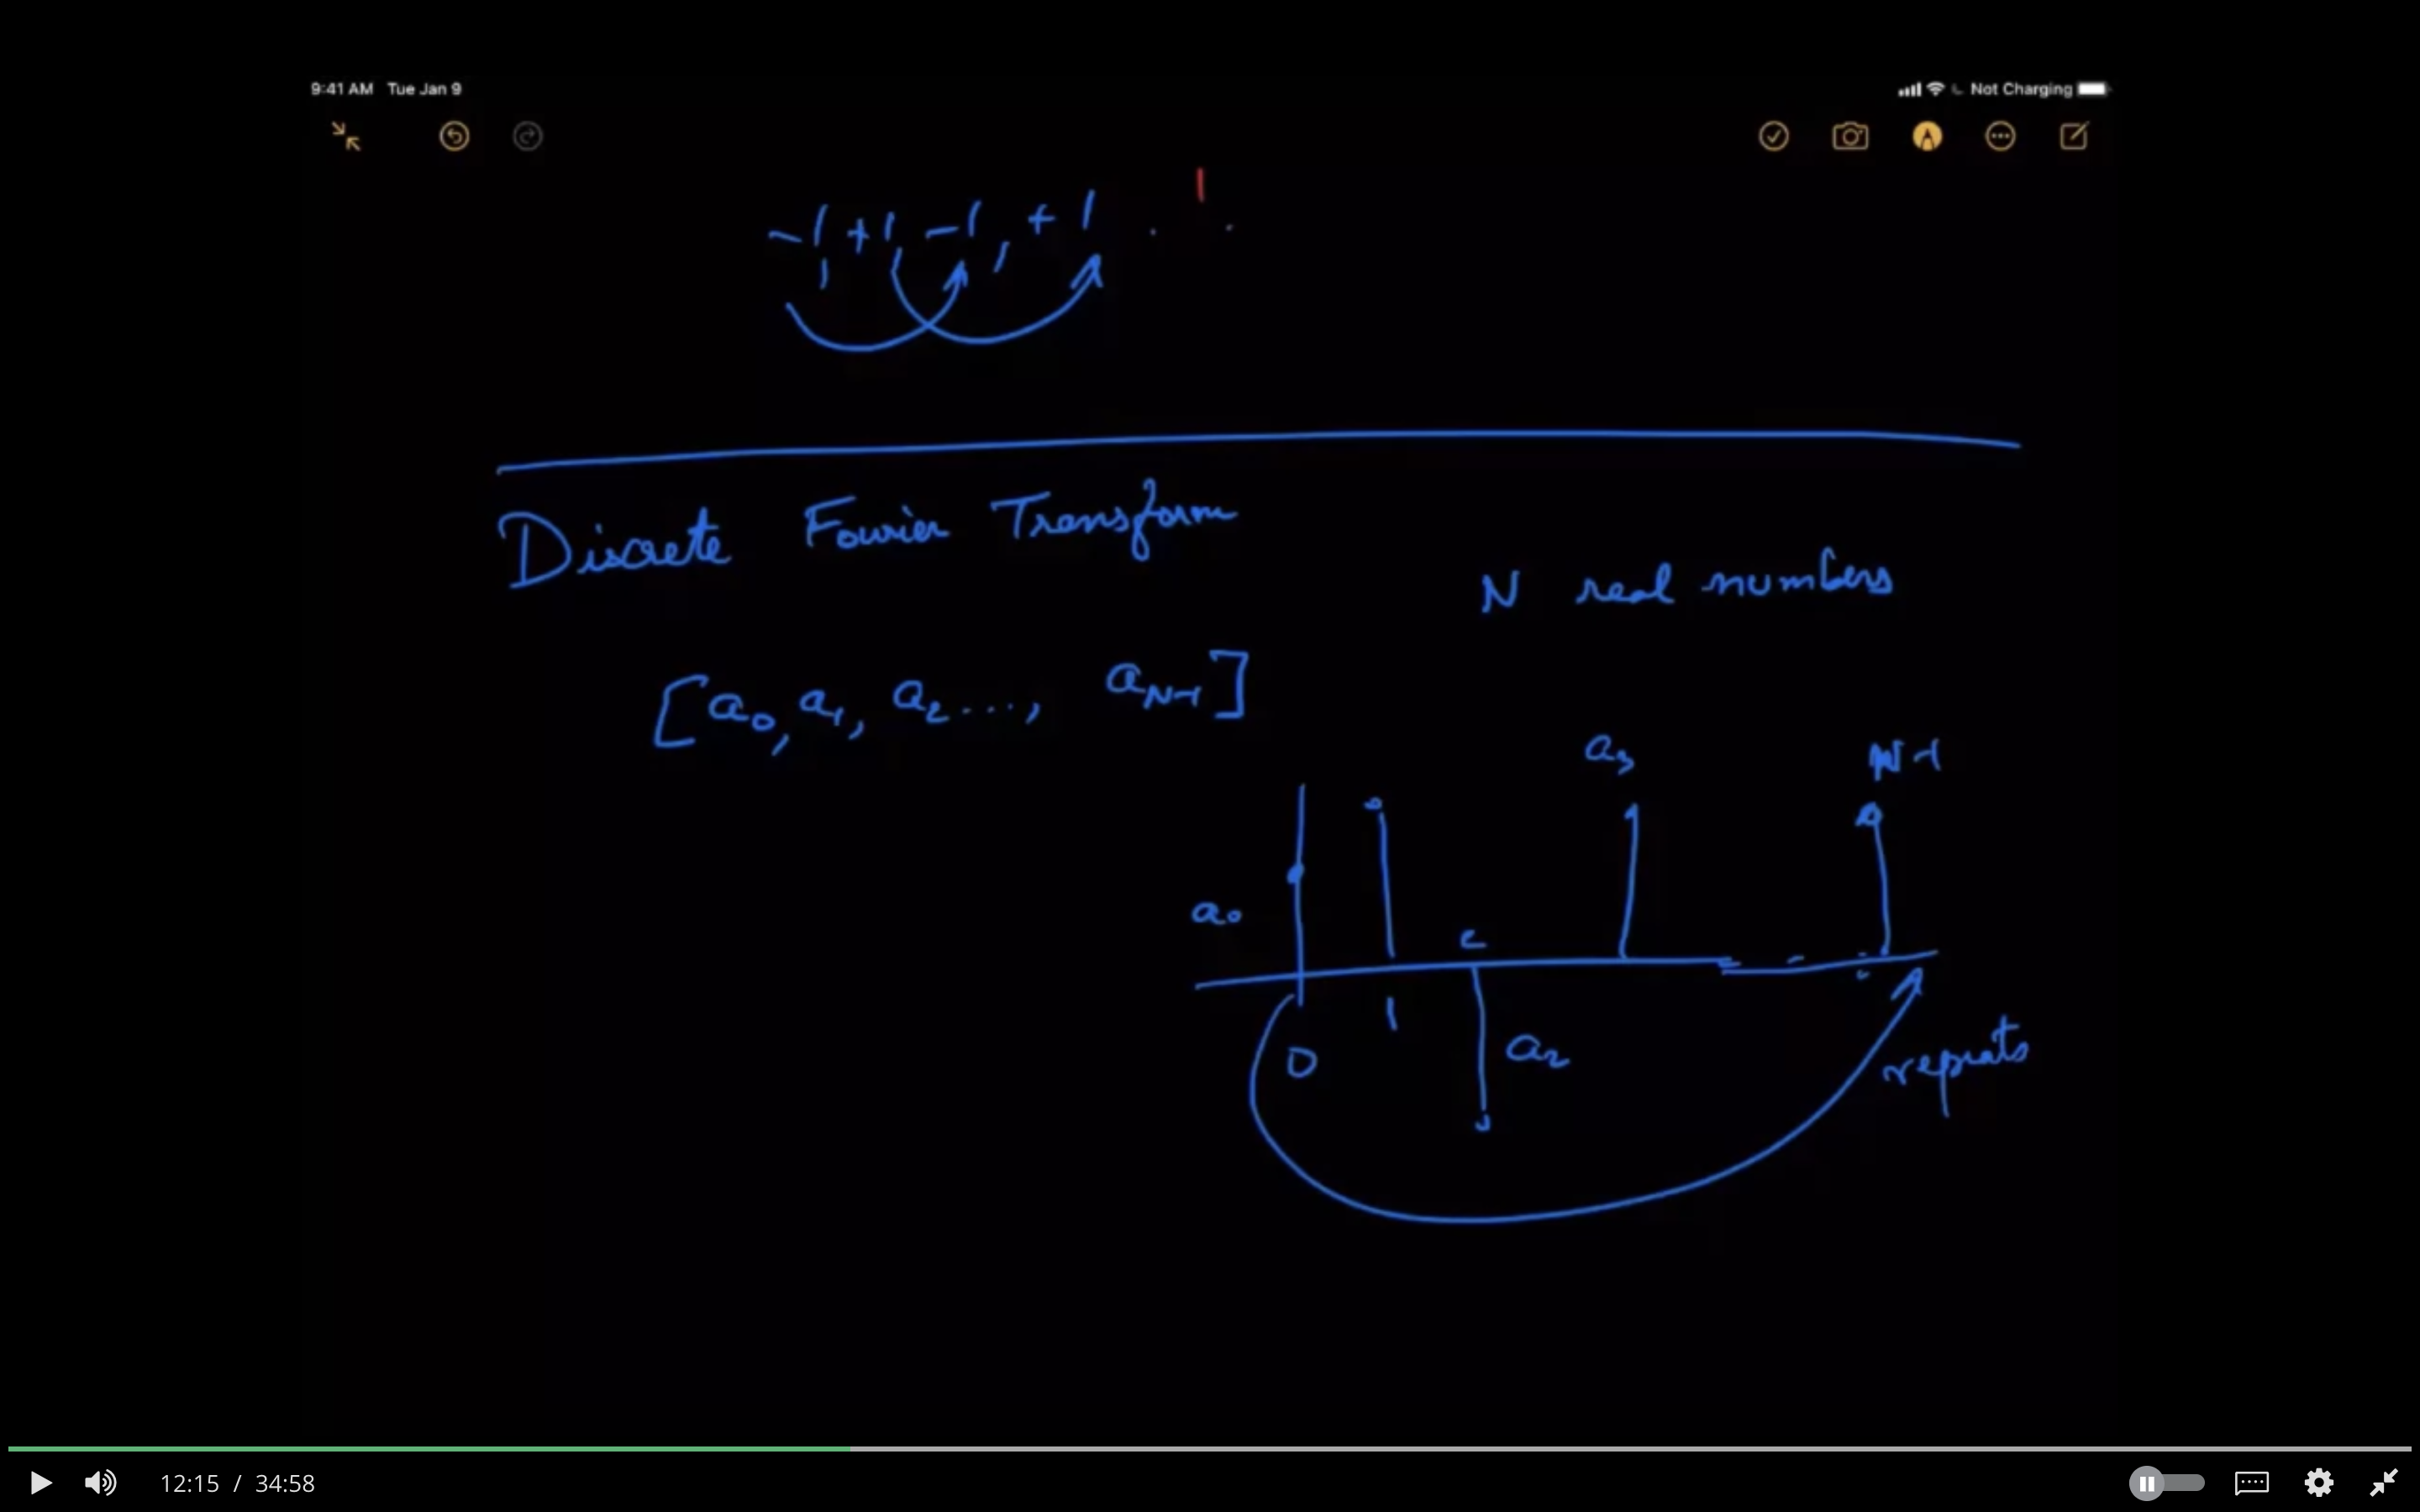 9:41 AM Tue Jan 9
Not Charging
-1, +1, -1, +1 . .
Discrete Fourier Transform
N real numbers
[a₀, a₁, a₂ ..., a_N-1]
a₃
N-1
a₀
0
1
a₂
repeats
12:15 / 34:58